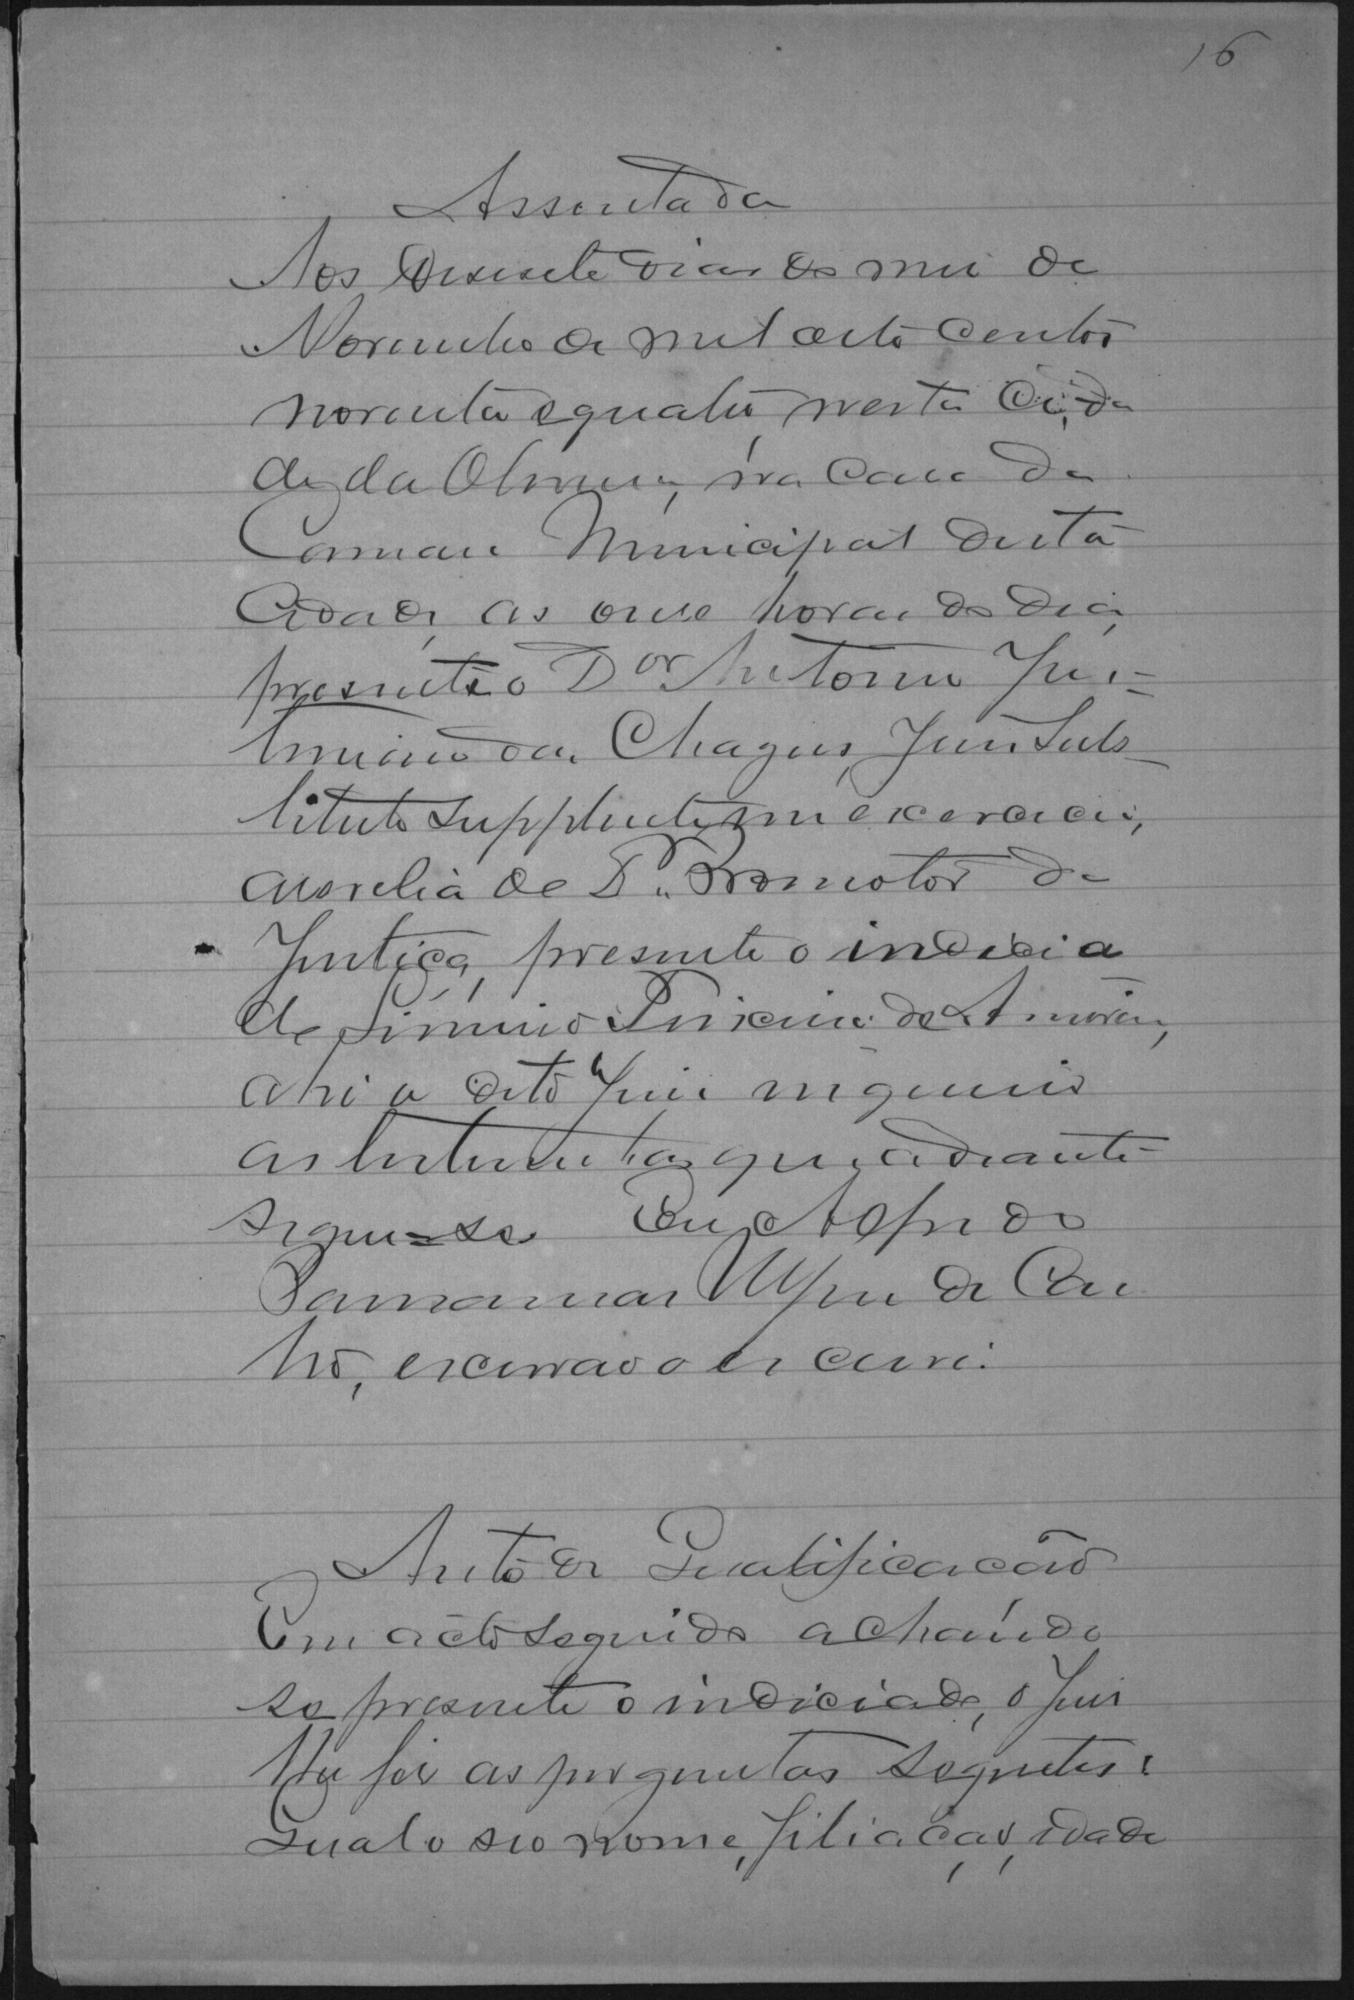 16
Assentada
Aos desesete dias do mez de
Novembro de mil oito centos
noventa e quatro, nesta Cida
de da  na Casa da
Camara Municipal desta
Cidade, as onze horas do dia,
presente o Dor Antonio Jus=
tiniano das Chagas, Juiz Subs_
tituto supplente em exercicio,
a revelia de Dr. Promotor da
Justiça, presente o indicia
do Firmino  de Amorim,
ahi o dito Juiz inqueriu
as testemunhas que adiante
segue=se. Eu Alfredo
de
escrivão o escrevi.
Auto de Qualificação
Em acto seguido achando
se presente o indiciado, o Juiz
lhe fez as perguntas seguintes:
Qual o seu nome, filiação, idade